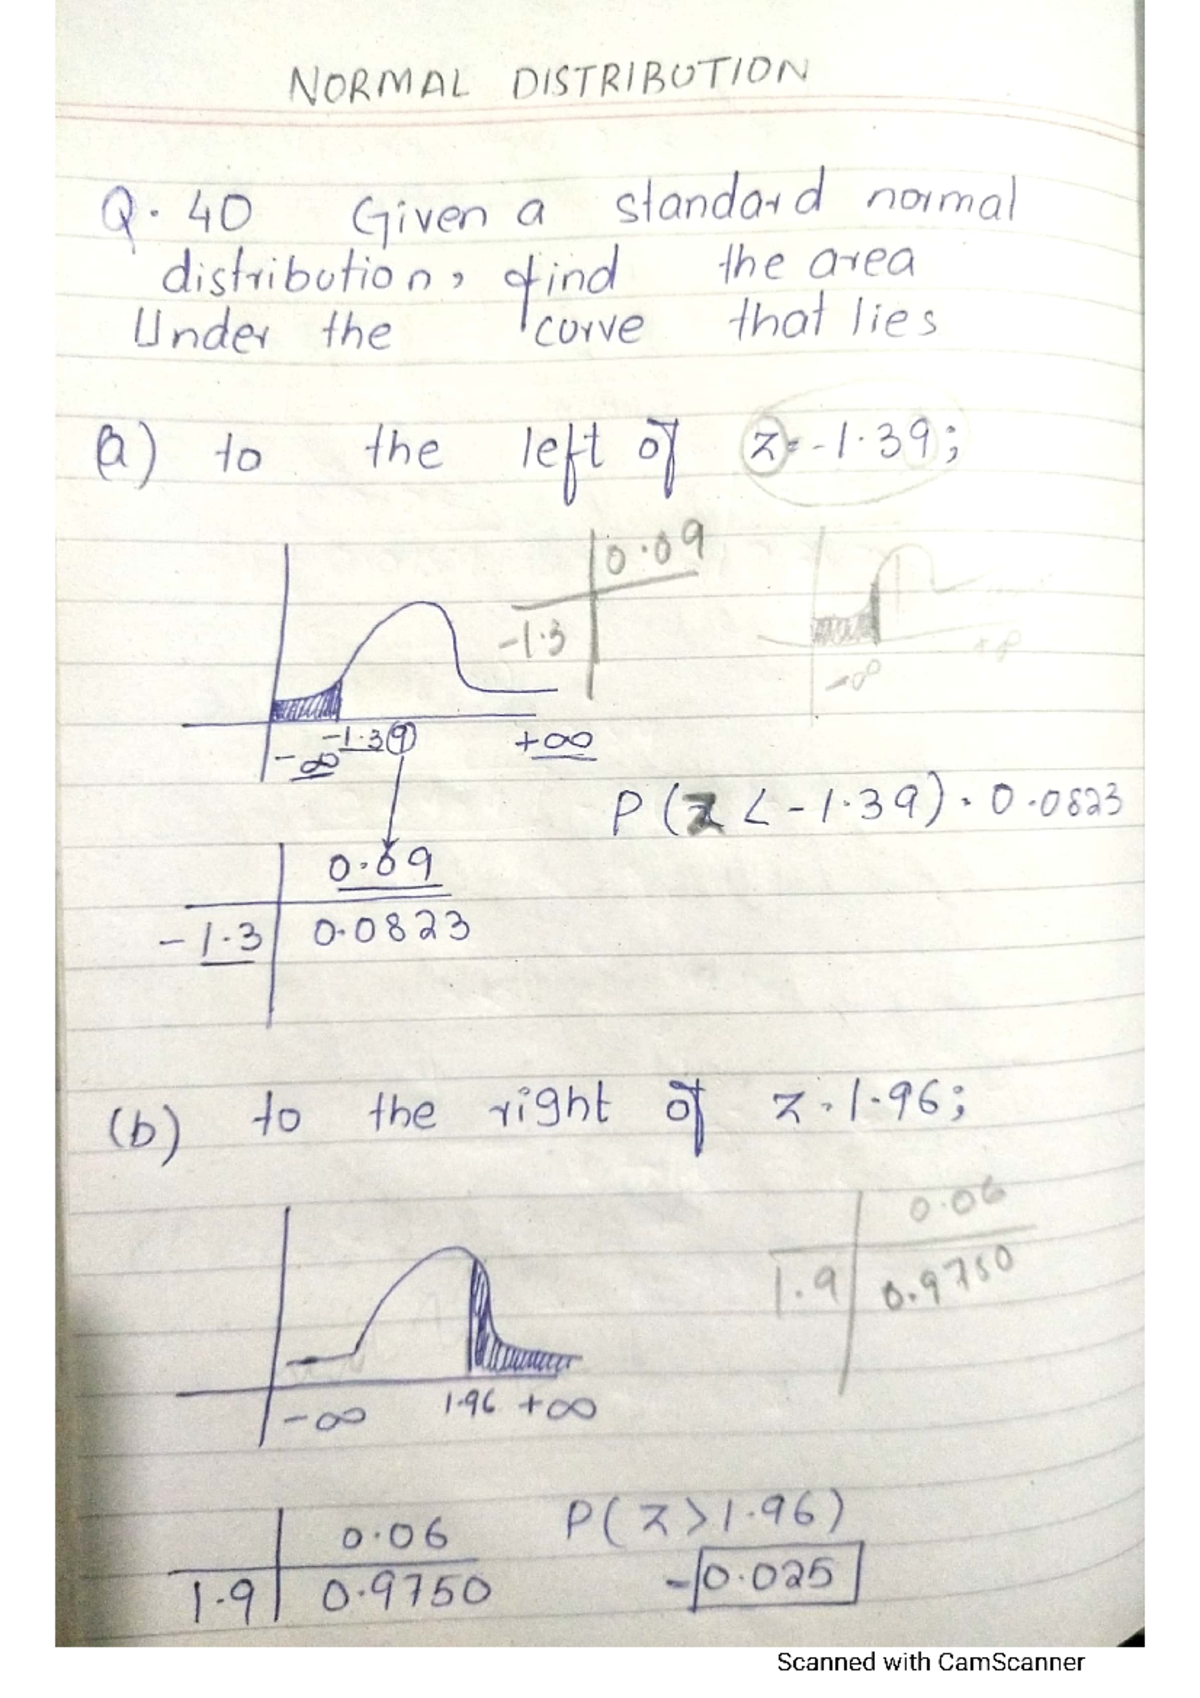 NORMAL DISTRIBUTION
Q. 40 Given a standard normal
distribution, find the area
Under the curve that lies
(a) to the left of z = -1.39;
0.09
-1.3
-∞ -1.39 +∞
-∞ +∞
P(z < -1.39) = 0.0823
0.09
-1.3 0.0823
(b) to the right of z = 1.96;
0.06
1.9 0.9750
-∞ 1.96 +∞
0.06
1.9 0.9750
P(z > 1.96)
= 0.025
Scanned with CamScanner